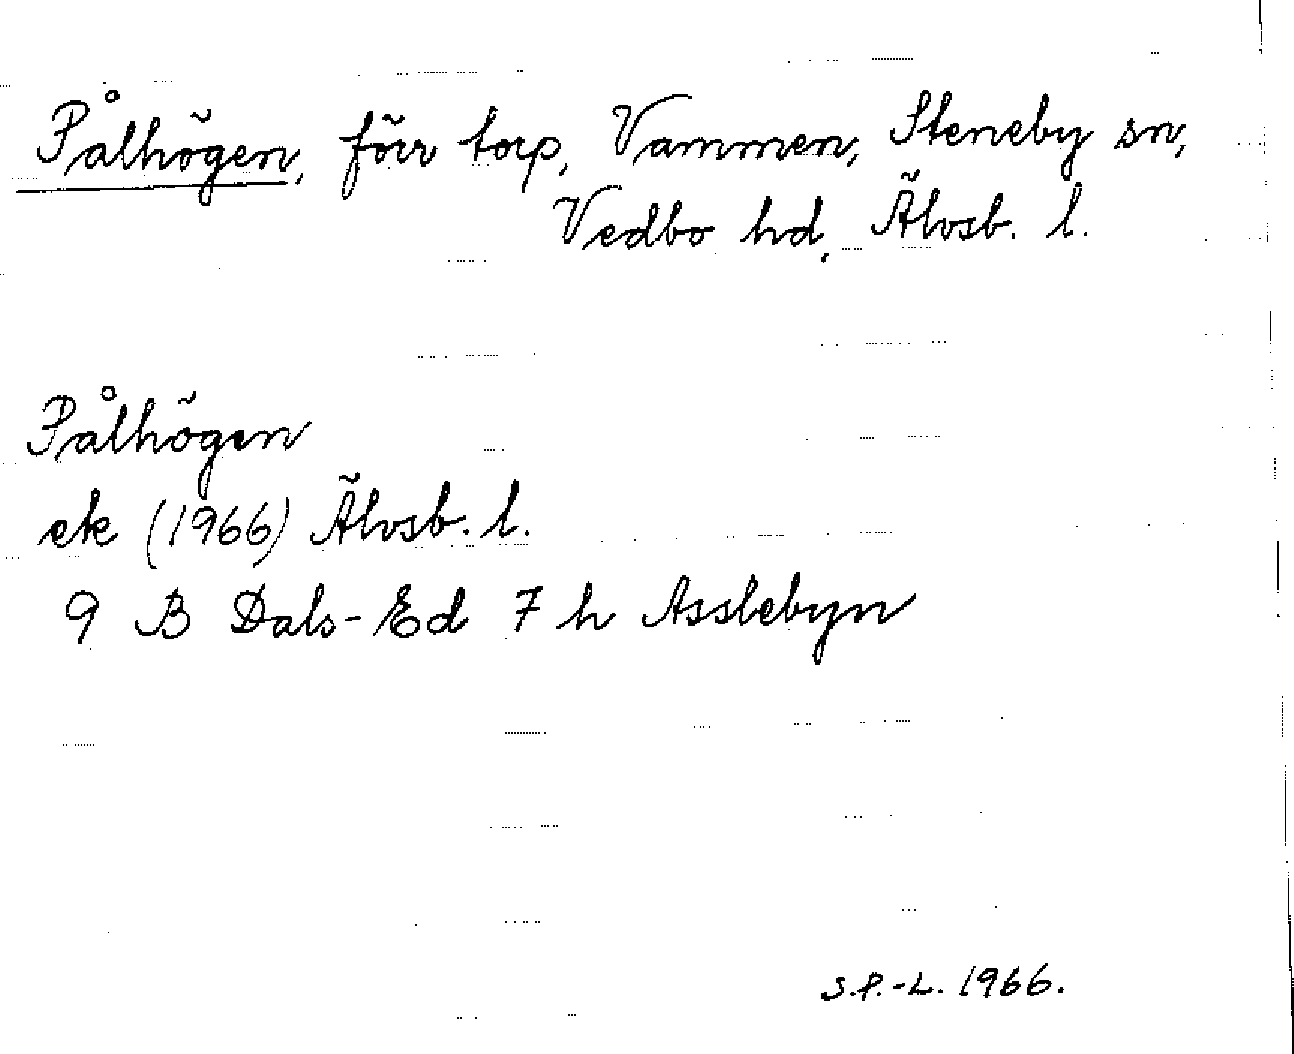 Pålhögen, förr torp, Vammen, Steneby sn,
Vedbo hd, Älvsb. l.
Pålhögen
ek (1966) Älvsb. l.
9 B Dals-Ed 7 h Asslebyn
S.P.-L. 1966.